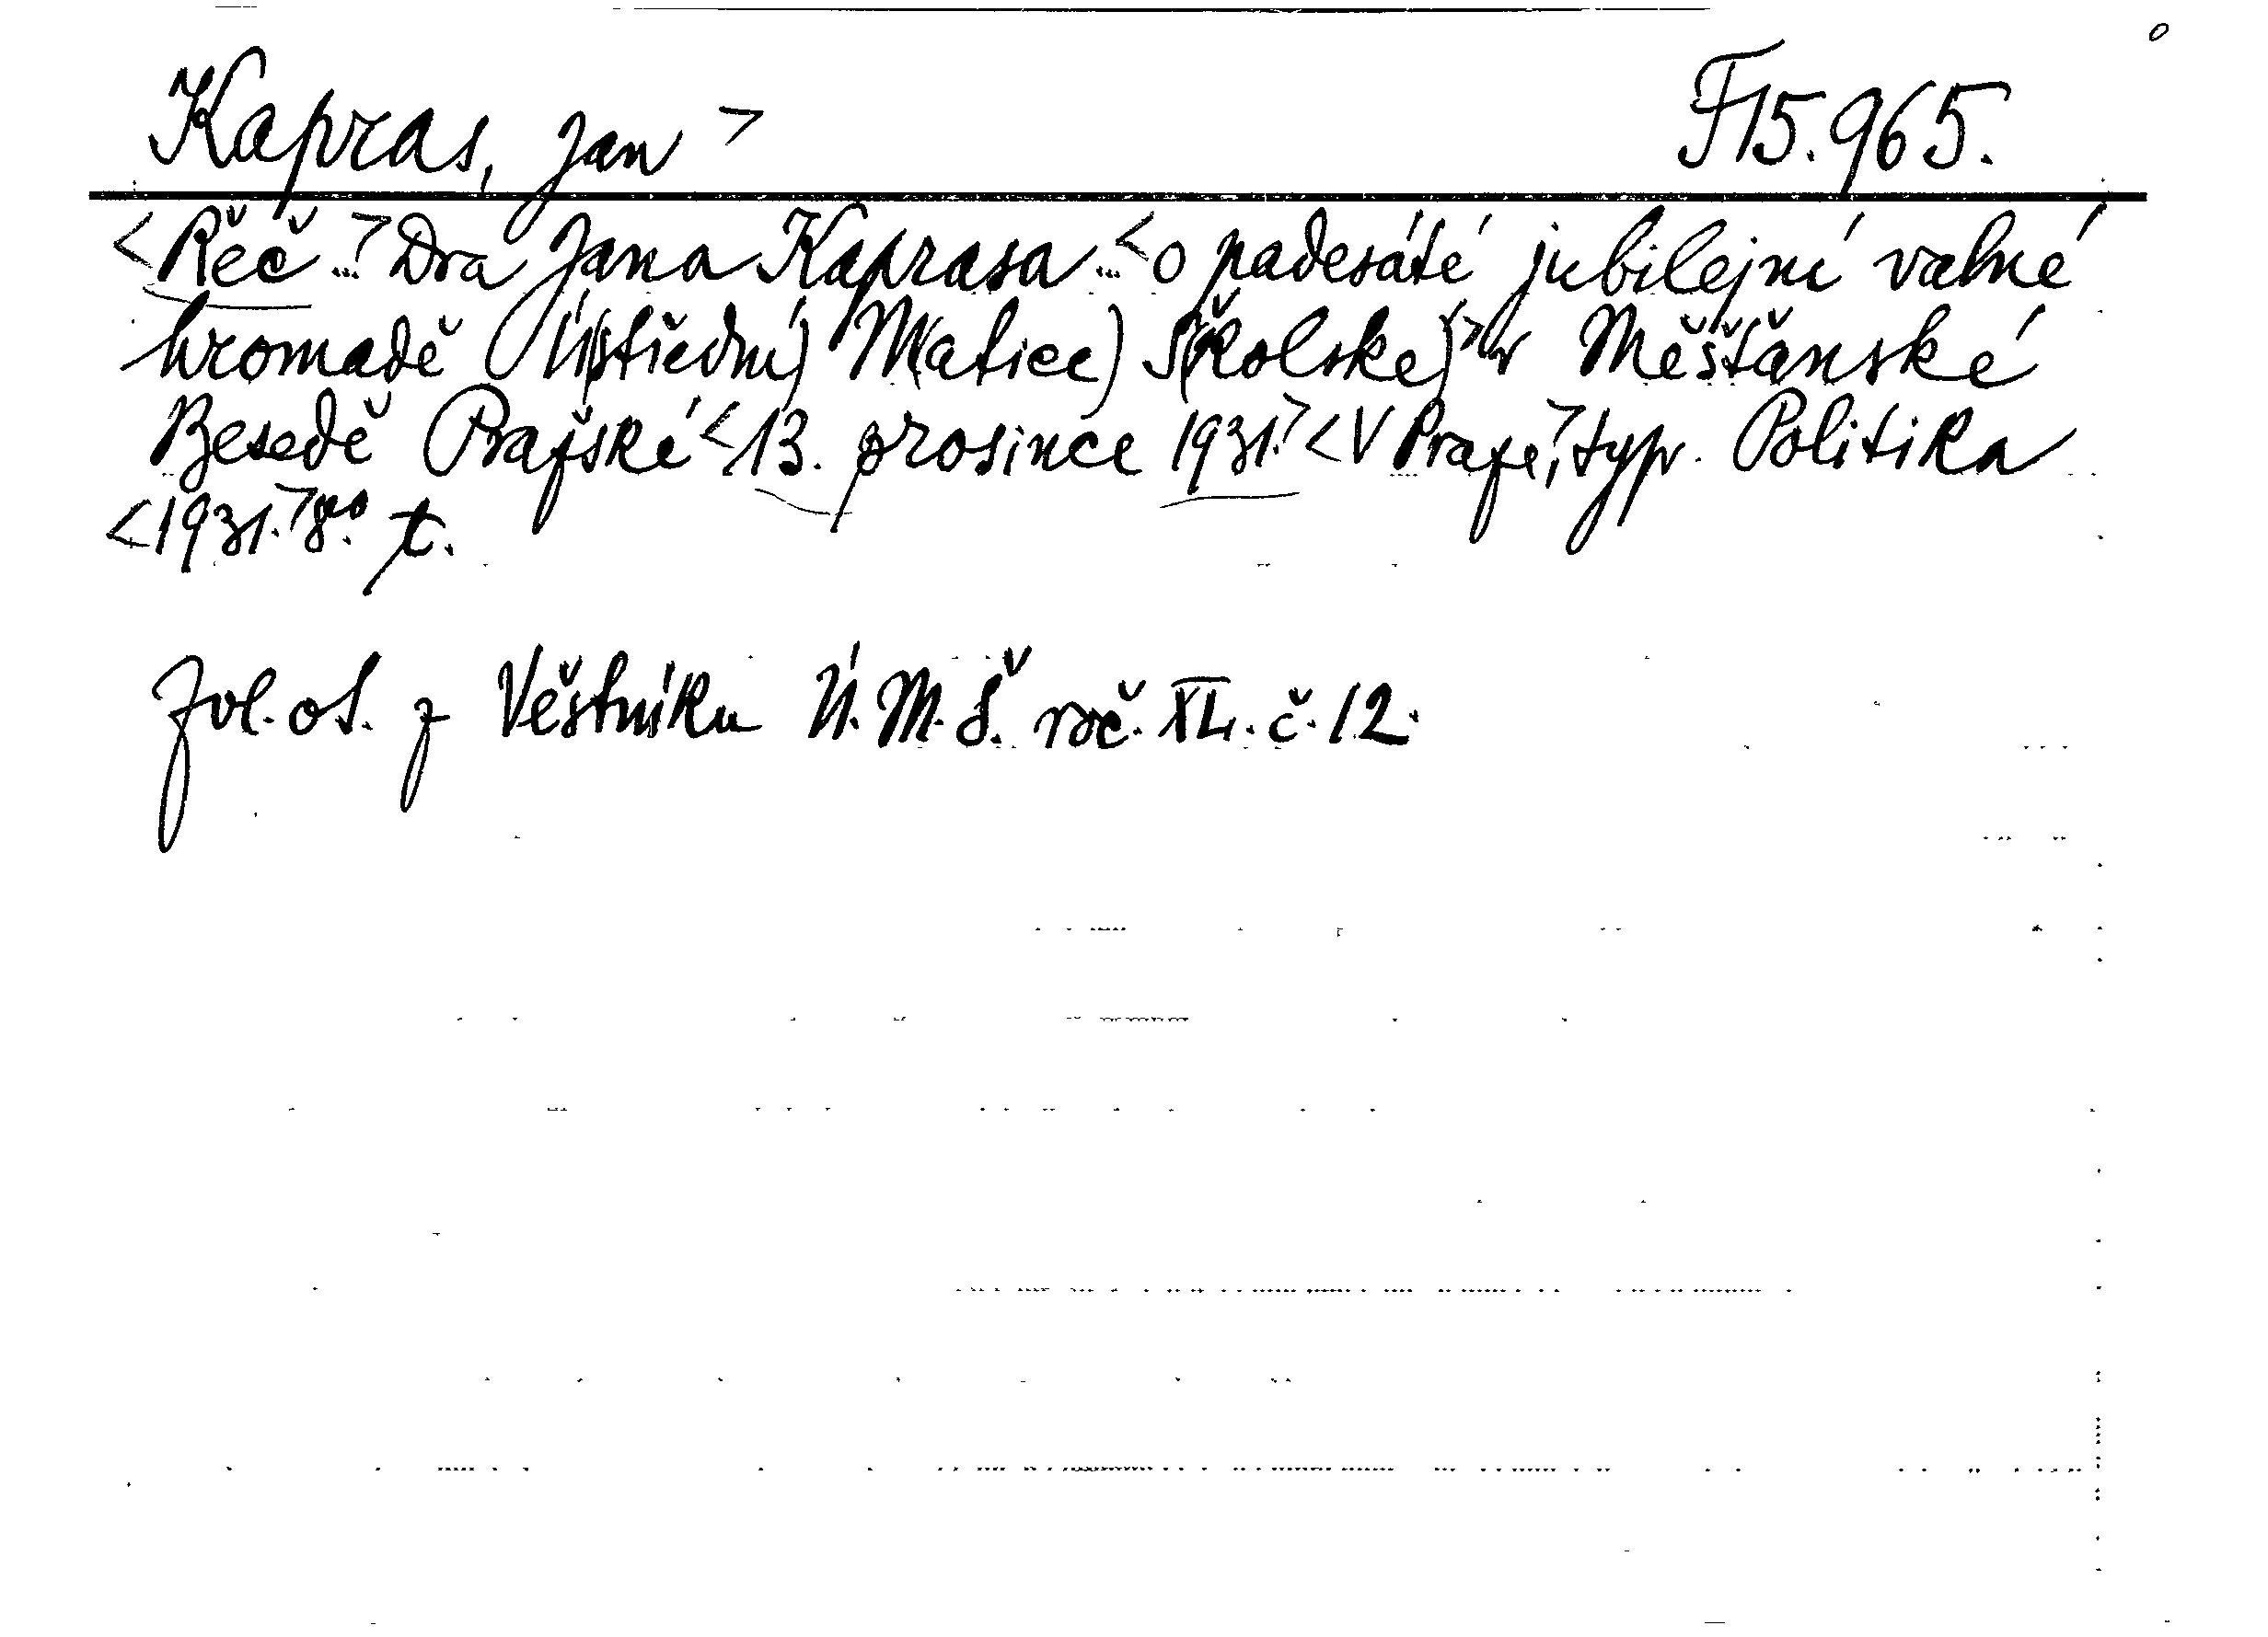 Kapras, Jan > F 15.965.
<Řeč...> Dra Jana Kaprasa...< o padesáté jubilejní valné
hromadě Ú(střední) M(atice) Š(kolské)> v Měšťanské
Besedě Pražské <13. prosince 1931.> <V Praze,> typ. Politika
<1931.> 8º. t.
Zvl. ot. z Věstníku Ú. M. Š. roč. XL. č. 12.